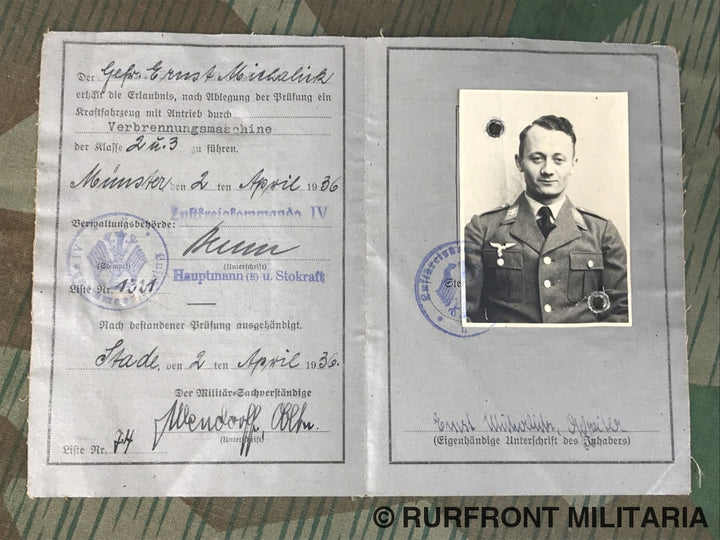 Der Gefr. Ernst Michalick
erhält die Erlaubnis, nach Ablegung der Prüfung ein
Kraftfahrzeug mit Antrieb durch
Verbrennungsmaschine
der Klasse 2 u. 3 zu führen.
Münster, den 2 ten April 1936
Luftkreiskommando IV
Verwaltungsbehörde:
(Stempel)
(Unterschrift)
Hauptmann (E) u. Stokraft
Liste Nr. 1321
Nach bestandener Prüfung ausgehändigt.
Stade, den 2 ten April 1936.
Der Militär-Sachverständige
(Unterschrift)
Liste Nr. 74
Ernst
(Eigenhändige Unterschrift des Inhabers)
© RURFRONT MILITARIA